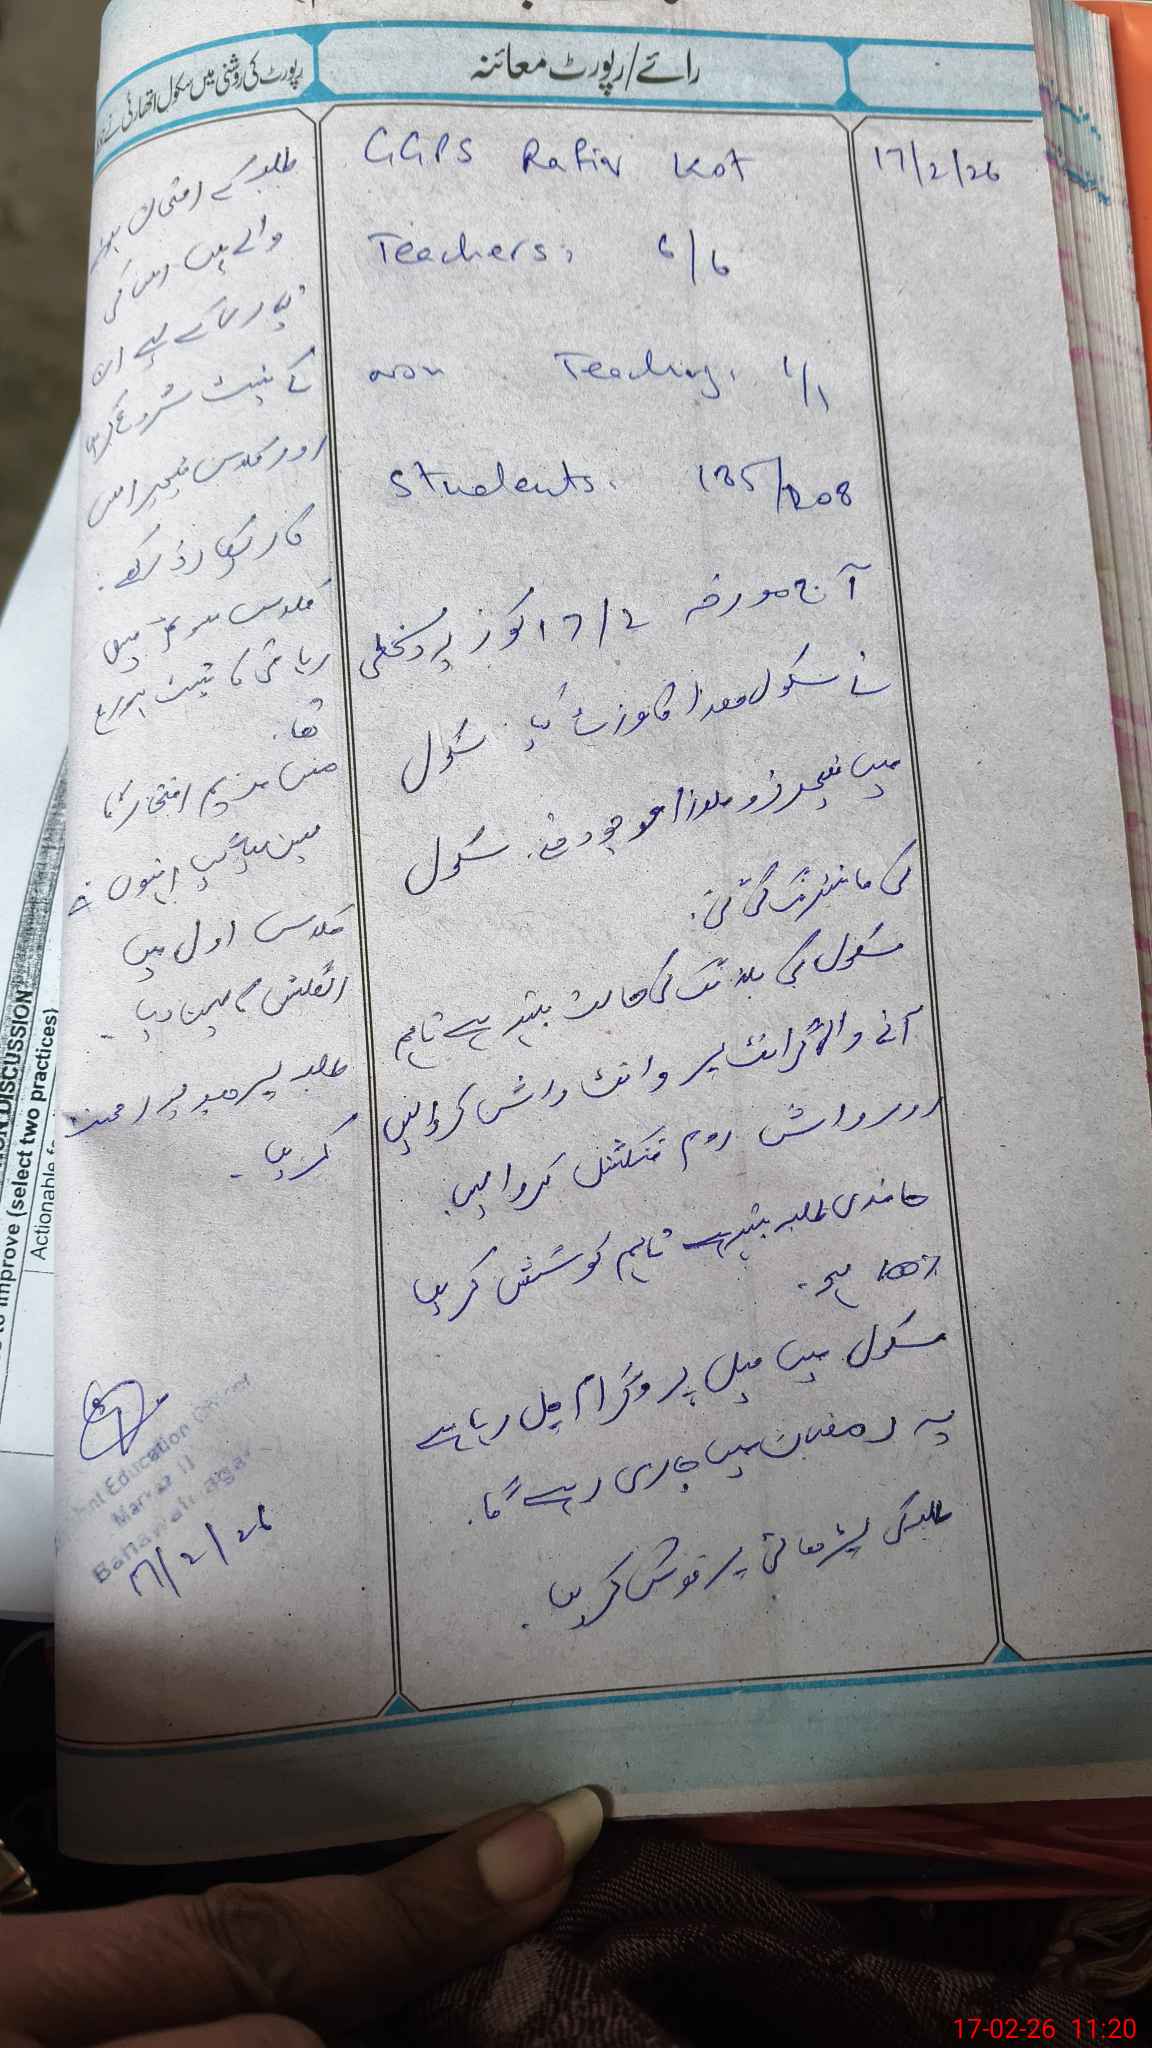 رائے/رپورٹ معائنہ
رپورٹ کی روشنی میں سکول اتھارٹی نے
17/2/26
GGPS Rafiq Kot
Teachers: 6/6
non Teaching. 1/1
Students. 135/208
آج مورخہ 17/2 کو زیر دستخطی
نے سکول ھذا کا وزٹ کیا۔ سکول
میں ٹیچرز و ملازم موجود تھے۔ سکول
کی مانیٹرنگ کی گئی۔
سکول کی بلڈنگ کی حالت بہتر ہے تاہم
آنے والی گرانٹ پر وائٹ واش کروائیں
اور واش روم فنکشنل کروائیں۔
حاضری طلبہ بہتر ہے تاہم کوشش کریں
100% ہو۔
سکول میں میل پروگرام چل رہا ہے
یہ رمضان میں جاری رہے گا۔
طلبہ کی پڑھائی پر فوکس کریں۔
طلبہ کے امتحان ہونے
والے ہیں اس کی
تیاری کے لیے ان
کے ٹیسٹ شروع کریں
اور کلاس ٹیچر اس
کا ریکارڈ رکھے۔
کلاس میں
ریاضی کا ٹیسٹ ہو رہا
تھا۔
مس مریم افتخار کا
لیسن لیا گیا انہوں نے
کلاس اول میں
انگلش کا لیسن دیا۔
طلبہ پر مزید محنت
کریں۔
Education Officer
Markaz 11
Bahawalnagar
17/2/26
DISCUSSION
to improve (select two practices)
Actionable
17-02-26 11:20